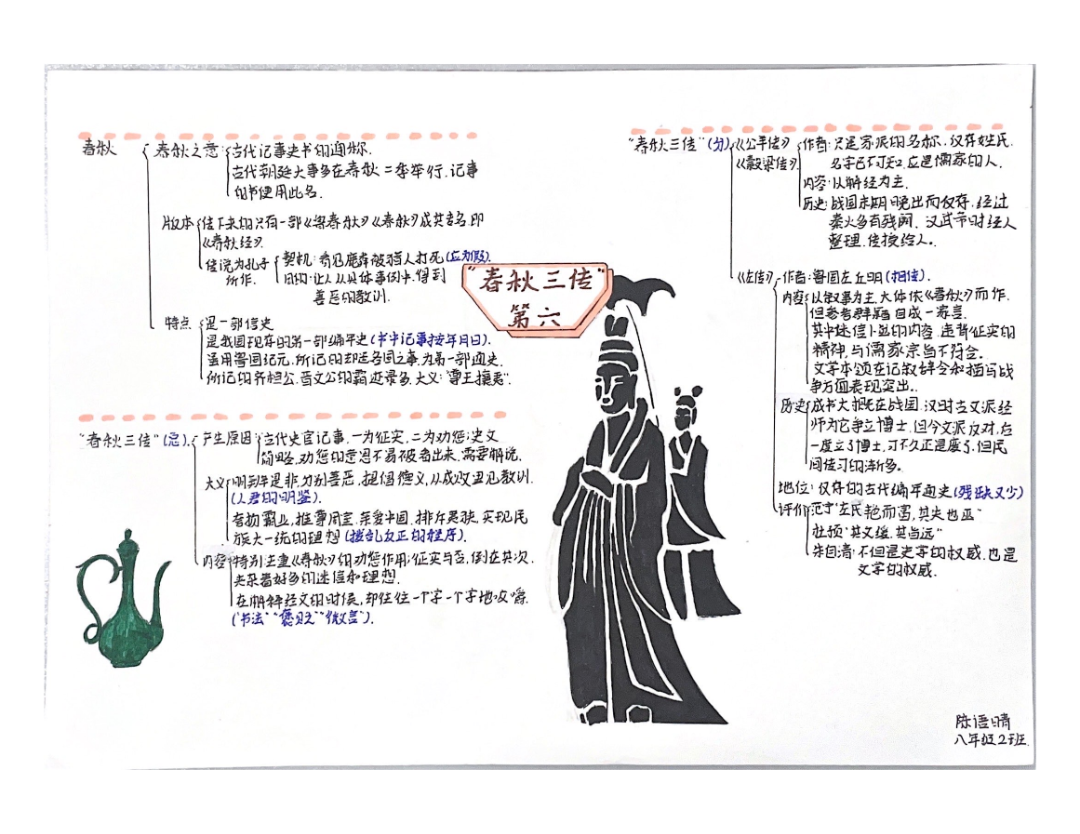 春秋
春秋之意：古代记事史书的通称.
古代朝廷大事多在春秋二季举行.记事
的书使用此名.
版本
传下来的只有一部《鲁春秋》《春秋》成其专名即
《春秋经》.
传说为孔子
所作.
契机：有只麒麟被猎人打死(应为假).
目的：让人从具体事例中.得到
善恶的教训.
特点
是一部信史
是我国现存的第一部编年史(书中记事按年月日).
虽用鲁国纪元,所记的却是各国之事.为第一部通史.
所记的齐桓公.晋文公的霸迹最多.大义："尊王攘夷".
"春秋三传"
第六
"春秋三传"(总)
产生原因：古代史官记事.一为征实.二为劝惩;史文
简略.劝惩的意思不易被看出来.需要解说.
大义
明到是非,分别善恶,提倡德义,从成败里见教训.
(人君的明鉴).
有扬霸业,推尊周室,亲爱中国,排斥夷狄.实现民
族大一统的理想(拨乱反正的程序).
内容
特别注重《春秋》的劝惩作用;征实与否,倒在其次.
夹杂着好多的迷信和理想.
在解释经文的时候,却往往一个字一个字地咬嚼.
(书法""褒贬""微言").
"春秋三传"(分)
《公羊传》
《穀梁传》
作者：只是家派的名称.仅存姓氏.
名字已不可知.应是儒家的人.
内容：以解经为主.
历史：战国末期晚出而仅存.经过
秦火多有残阙.汉武帝时经人
整理.传授给人.
《左传》
作者：鲁国左丘明(相信).
内容：以叙事为主.大体依《春秋》而作.
但参考群籍自成一家言.
其中迷信卜筮的内容违背征实的
精神.与儒家宗旨不符合.
文学本领在记叙辞令和描写战
争方面表现突出.
历史：成书大抵在战国.汉时古文派经
师为它争立博士.但今文派反对.后
一度立了博士.可不久还是废了.但民
间传习的渐多.
地位：仅存的古代编年通史(残缺又少)
评价：范宁"左氏艳而富,其失也巫"
杜预"其文缓,其旨远"
朱自清：不但是史学的权威.也是
文学的权威.
陈语晴
八年级2班